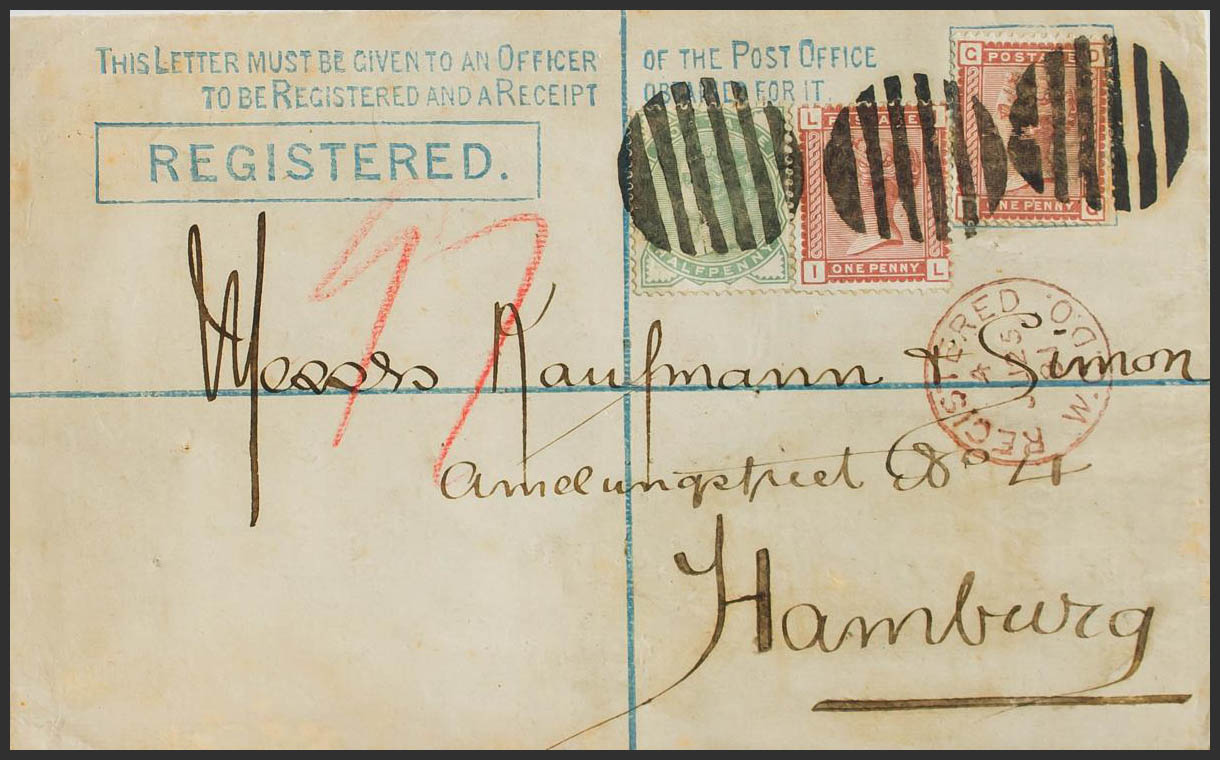 THIS LETTER MUST BE GIVEN TO AN OFFICER OF THE POST OFFICE
TO BE REGISTERED AND A RECEIPT OBTAINED FOR IT.
REGISTERED.
G POSTAGE D
ONE PENNY G
L POSTAGE
I ONE PENNY L
HALFPENNY
REGISTERED W.D.O.
4 25
Messrs Kaufmann & Simon
Amelungstreet No 4
Hamburg